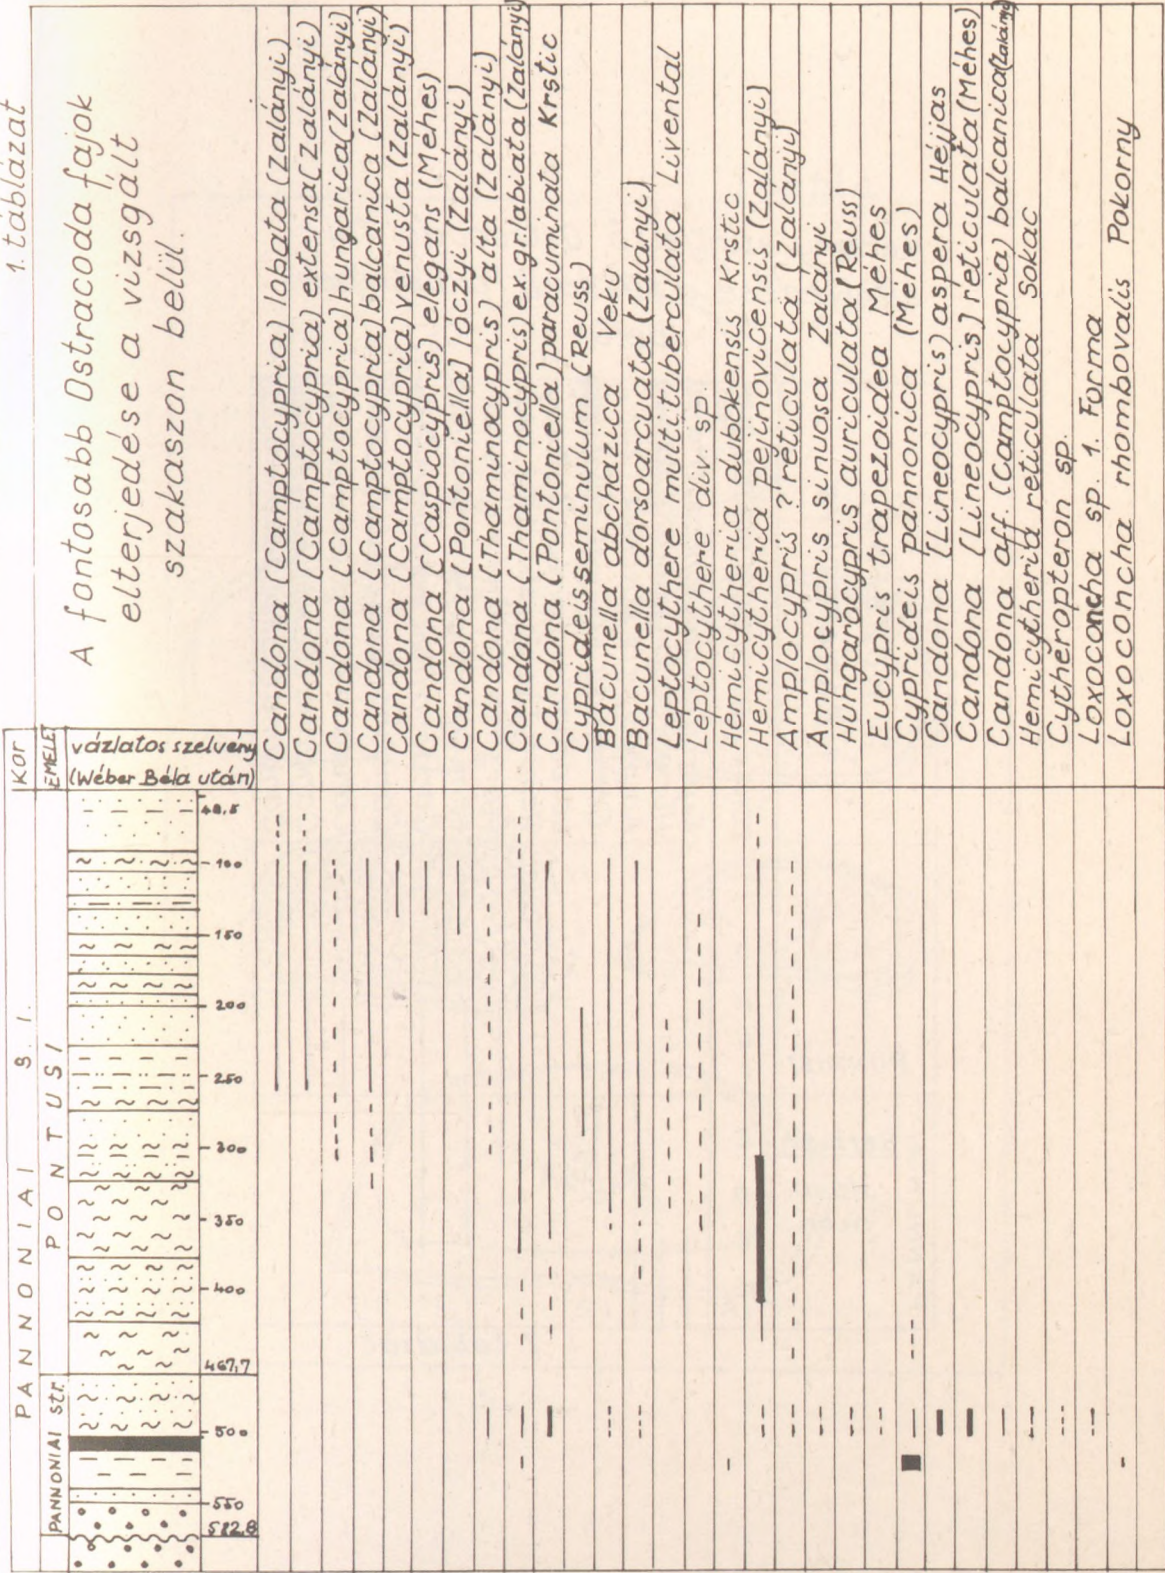 1. táblázat
A fontosabb Ostracoda fajok
elterjedése a vizsgált
szakaszon belül.
KOR
EMELET
vázlatos szelvény
(Wéber Béla után)
PANNONIAI S. l.
PONTUSI
PANNONIAI str.
48,5
100
150
200
250
300
350
400
467,7
500
550
572,8
Candona (Camptocypria) lobata (Zalányi)
Candona (Camptocypria) extensa (Zalányi)
Candona (Camptocypria) hungarica (Zalányi)
Candona (Camptocypria) balcanica (Zalányi)
Candona (Camptocypria) venusta (Zalányi)
Candona (Caspiocypris) elegans (Méhes)
Candona (Pontoniella) lóczyi (Zalányi)
Candona (Thaminocypris) alta (Zalányi)
Candona (Thaminocypris) ex. gr. labiata (Zalányi)
Candona (Pontoniella) paracuminata Krstic
Cyprideis seminulum (Reuss)
Bacunella abchazica Veku
Bacunella dorsoarcuata (Zalányi)
Leptocythere multituberculata Livental
Leptocythere div. sp.
Hemicytheria dubokensis Krstic
Hemicytheria pejinovicensis (Zalányi)
Amplocypris ? reticulata (Zalányi)
Amplocypris sinuosa Zalányi
Hungarocypris auriculata (Reuss)
Eucypris trapezoidea Méhes
Cyprideis pannonica (Méhes)
Candona (Lineocypris) aspera Héjjas
Candona (Lineocypris) reticulata (Méhes)
Candona aff. (Camptocypria) balcanica (Zalányi)
Hemicytheria reticulata Sokac
Cytheropteron sp.
Loxoconcha sp. 1. Forma
Loxoconcha rhombovalis Pokorny